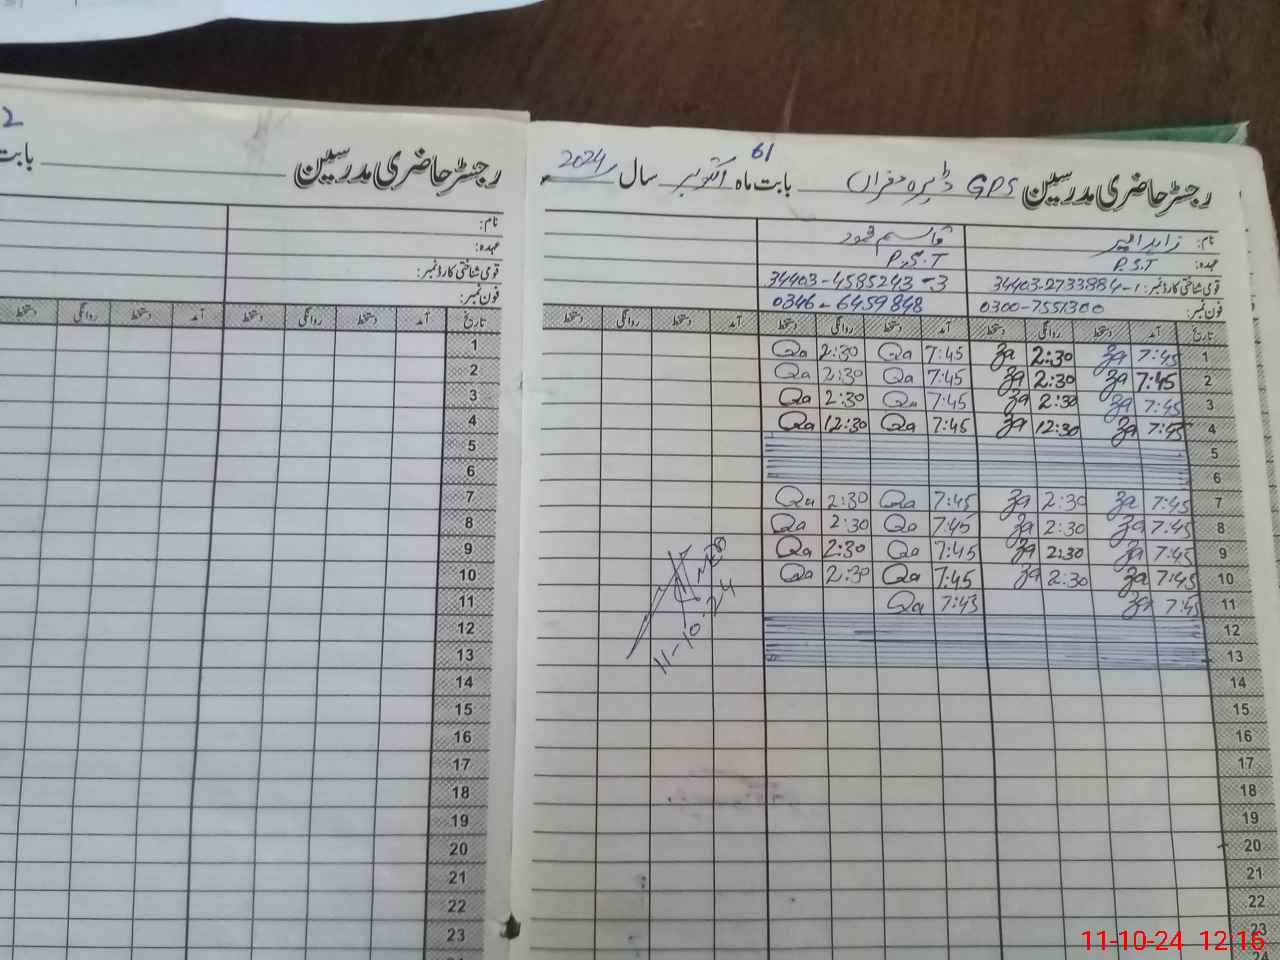 2
رجسٹر حاضری مدرسین بابت
نام:
عہدہ:
قومی شناختی کارڈ نمبر:
فون نمبر:
تاریخ آمد دستخط روانگی دستخط آمد دستخط روانگی دستخط
1
2
3
4
5
6
7
8
9
10
11
12
13
14
15
16
17
18
19
20
21
22
23
61
رجسٹر حاضری مدرسین GPS ڈیرہ بابت ماہ اکتوبر سال 2024
نام: زاہد امیر قاسم محمود
عہدہ: P.S.T P.S.T
قومی شناختی کارڈ نمبر: 34403-2733984-1 34403-4585243-3
فون نمبر: 0300-7551300 0346-6459848
تاریخ آمد دستخط روانگی دستخط آمد دستخط روانگی دستخط آمد دستخط روانگی دستخط
1 7:45 Za 2:30 Za 7:45 Qa 2:30 Qa
2 7:45 Za 2:30 Za 7:45 Qa 2:30 Qa
3 7:45 Za 2:30 Za 7:45 Qa 2:30 Qa
4 7:45 Za 12:30 Za 7:45 Qa 12:30 Qa
5
6
7 7:45 Za 2:30 Za 7:45 Qa 2:30 Qa
8 7:45 Za 2:30 Za 7:45 Qa 2:30 Qa
9 7:45 Za 2:30 Za 7:45 Qa 2:30 Qa
10 7:45 Za 2:30 Za 7:45 Qa 2:30 Qa
11 7:45 Za 7:43 Qa
12
13
11-10-24
14
15
16
17
18
19
20
21
22
23
24
11-10-24 12:16